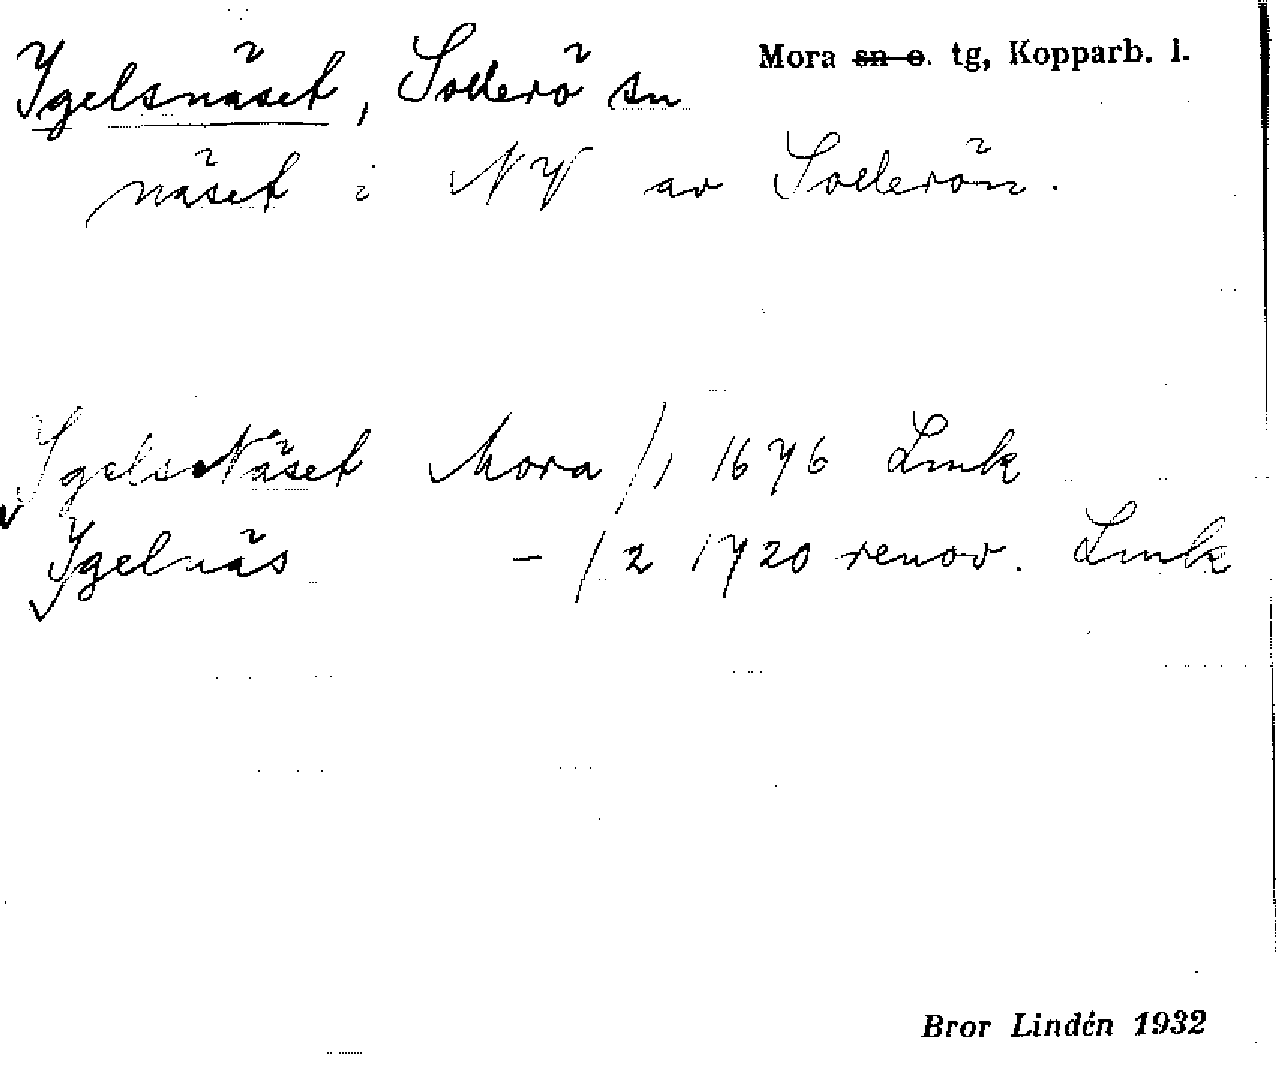 Igelsnäset, Sollerö sn
Mora sn o. tg, Kopparb. l.
näset i NV av Sollerön.
IgelsNäset Mora /1 1676 Lmk
Igelnäs - /2 1720 renov. Lmk
Bror Lindén 1932